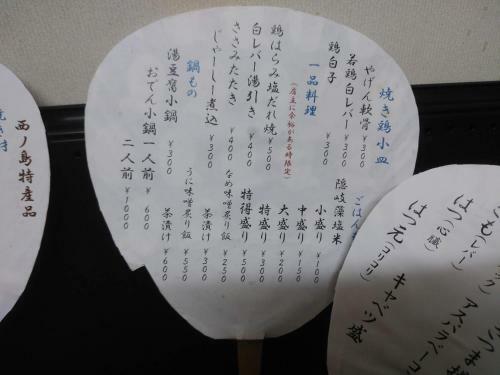 焼き鶏小皿
やげん軟骨 ¥300
若鶏白レバー ¥300
鶏白子 ¥300
一品料理
(店主に余裕がある時限定)
鶏はらみ塩だれ焼 ¥500
白レバー湯引き ¥400
ささみたたき ¥400
じゃーしー煮込 ¥300
鍋もの
湯豆腐小鍋 ¥300
おでん小鍋 一人前 ¥600
二人前 ¥1000
ごはん
隠岐藻塩米
小盛り ¥100
中盛り ¥150
大盛り ¥200
特盛り ¥300
特得盛り ¥500
なめ味噌炙り飯 ¥250
茶漬け ¥300
うに味噌炙り飯 ¥550
茶漬け ¥600
西ノ島特産品
焼き
こも(レバー)
はつ(心臓)
はつ元(コリコリ)
つま
アスパラベーコ
キャベツ盛